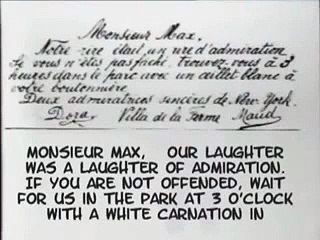 Monsieur Max,
Notre rire était un rire d'admiration
Si vous n'êtes pas faché. Trouvez vous à 3
heures dans le parc avec un œillet blanc à
votre boutonnière.
Deux admiratrices sincères de New-York.
Dora, Villa de la Ferme Maud
MONSIEUR MAX, OUR LAUGHTER
WAS A LAUGHTER OF ADMIRATION.
IF YOU ARE NOT OFFENDED, WAIT
FOR US IN THE PARK AT 3 O'CLOCK
WITH A WHITE CARNATION IN